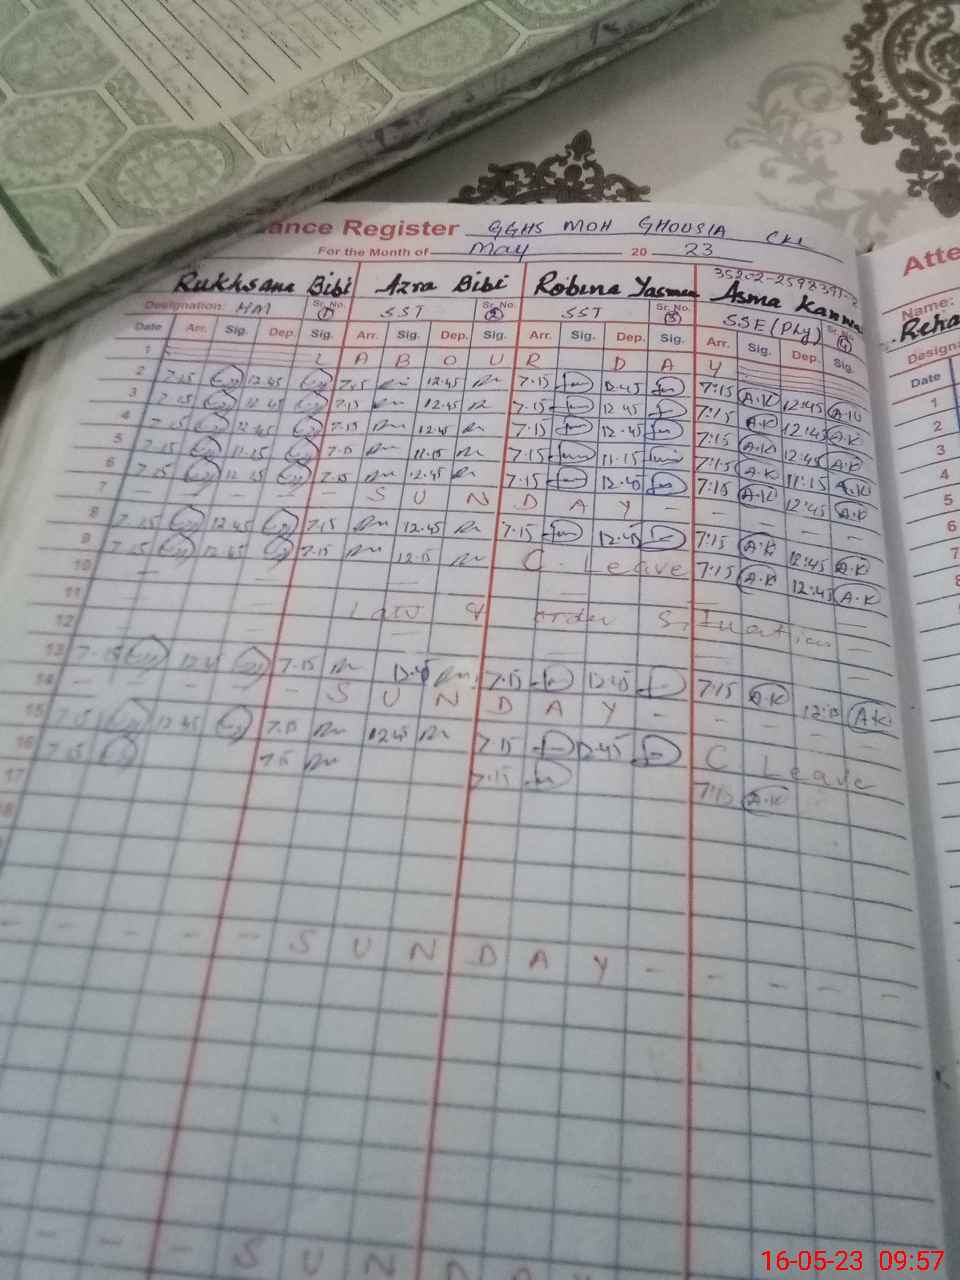 ance Register GGHS MOH GHOUSIA CKL
For the Month of May 20 23
Rukhsana Bibi Azra Bibi Robina Yasmeen Asma Kanwal
Designation: HM Sr. No. 1 SST Sr. No. 2 SST Sr. No. 3 SSE (Phy) Sr. No. 4
Date Arr. Sig. Dep. Sig. Arr. Sig. Dep. Sig. Arr. Sig. Dep. Sig. Arr. Sig. Dep. Sig.
1 L A B O U R D A Y
2 7.15 12.45 7.15 12.45 7.15 12.45 7:15 A.K 12:45 A.K
3 7.15 12.45 7.15 12.45 7.15 12.45 7:15 A.K 12:45 A.K
4 7.15 12.45 7.15 12.45 7.15 12.45 7:15 A.K 12:45 A.K
5 7.15 11.15 7.15 11.15 7.15 11.15 7:15 A.K 11:15 A.K
6 7.15 7.15 12.45 7.15 12.45 7:15 A.K 12:45 A.K
7 - - - - - S U N D A Y - - - - -
8 7.15 12.45 7.15 12.45 7.15 12.45 7:15 A.K 12:45 A.K
9 7.15 12.45 7.15 12.15 C. Leave 7:15 A.K 12:45 A.K
10
11 Law & order Situation
12
13 7.15 12.45 7.15 12.45 7.15 12.45 7:15 A.K A.K
14 - - - - - S U N D A Y - - - - -
15 7.15 12.45 7.15 12.45 7.15 12.45 C Leave
16 7.15 7.15 7.15 7:15 A.K
17
18
- - - - - S U N D A Y - - - - -
- - - - S U N D A Y
Atte
Name:
Reha
Designa
Date
1
2
3
4
5
6
7
8
16-05-23 09:57